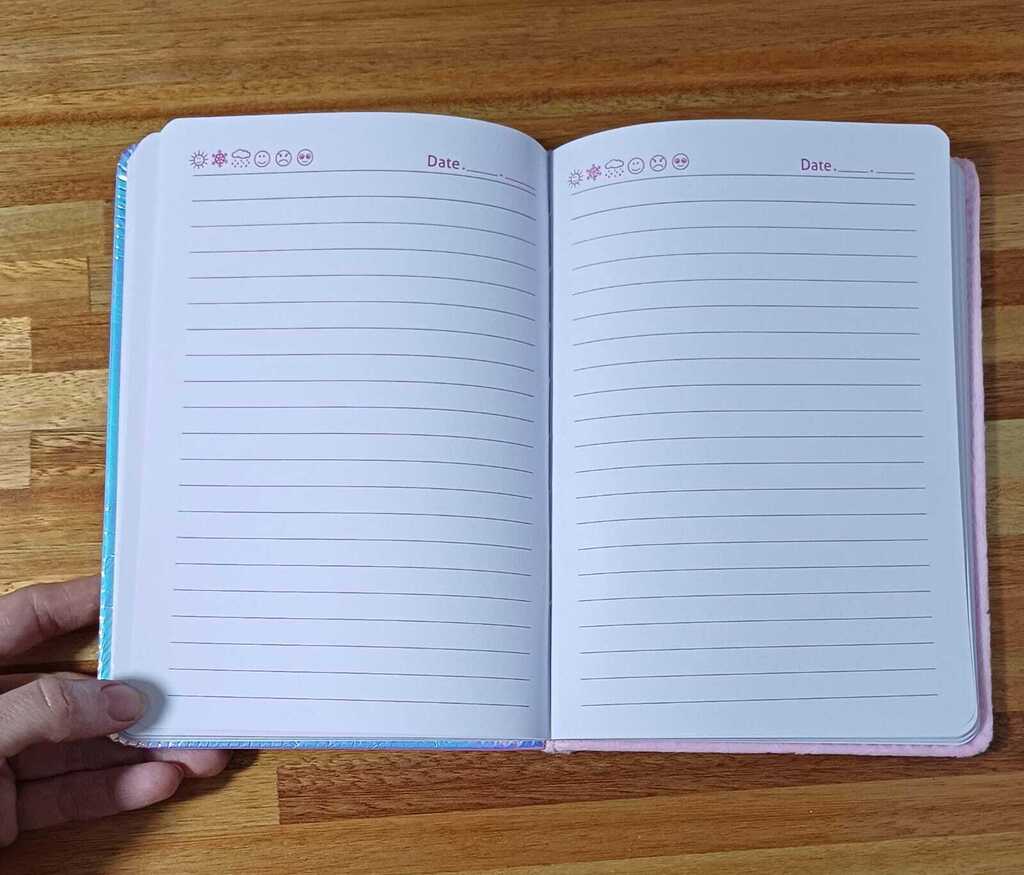 Date.____.____
Date.____.____